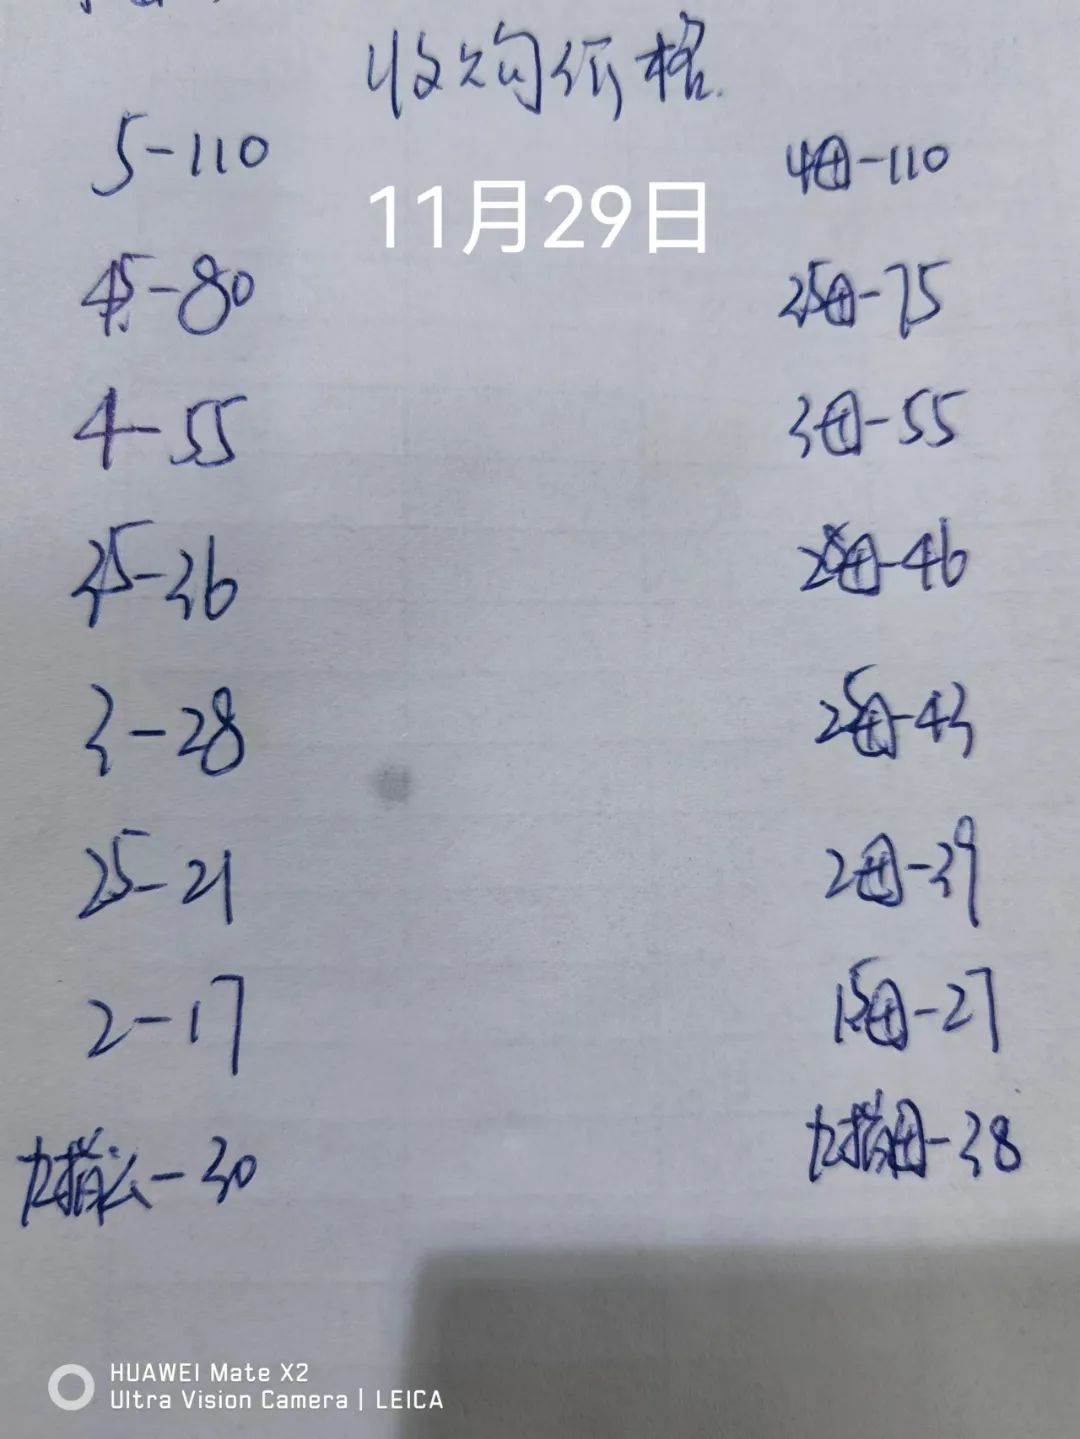 收购价格
11月29日
5-110
45-80
4-55
35-36
3-28
25-21
2-17
公-30
4母-110
25母-75
3母-55
母-46
25母-43
2母-39
15母-27
母-38
HUAWEI Mate X2
Ultra Vision Camera | LEICA